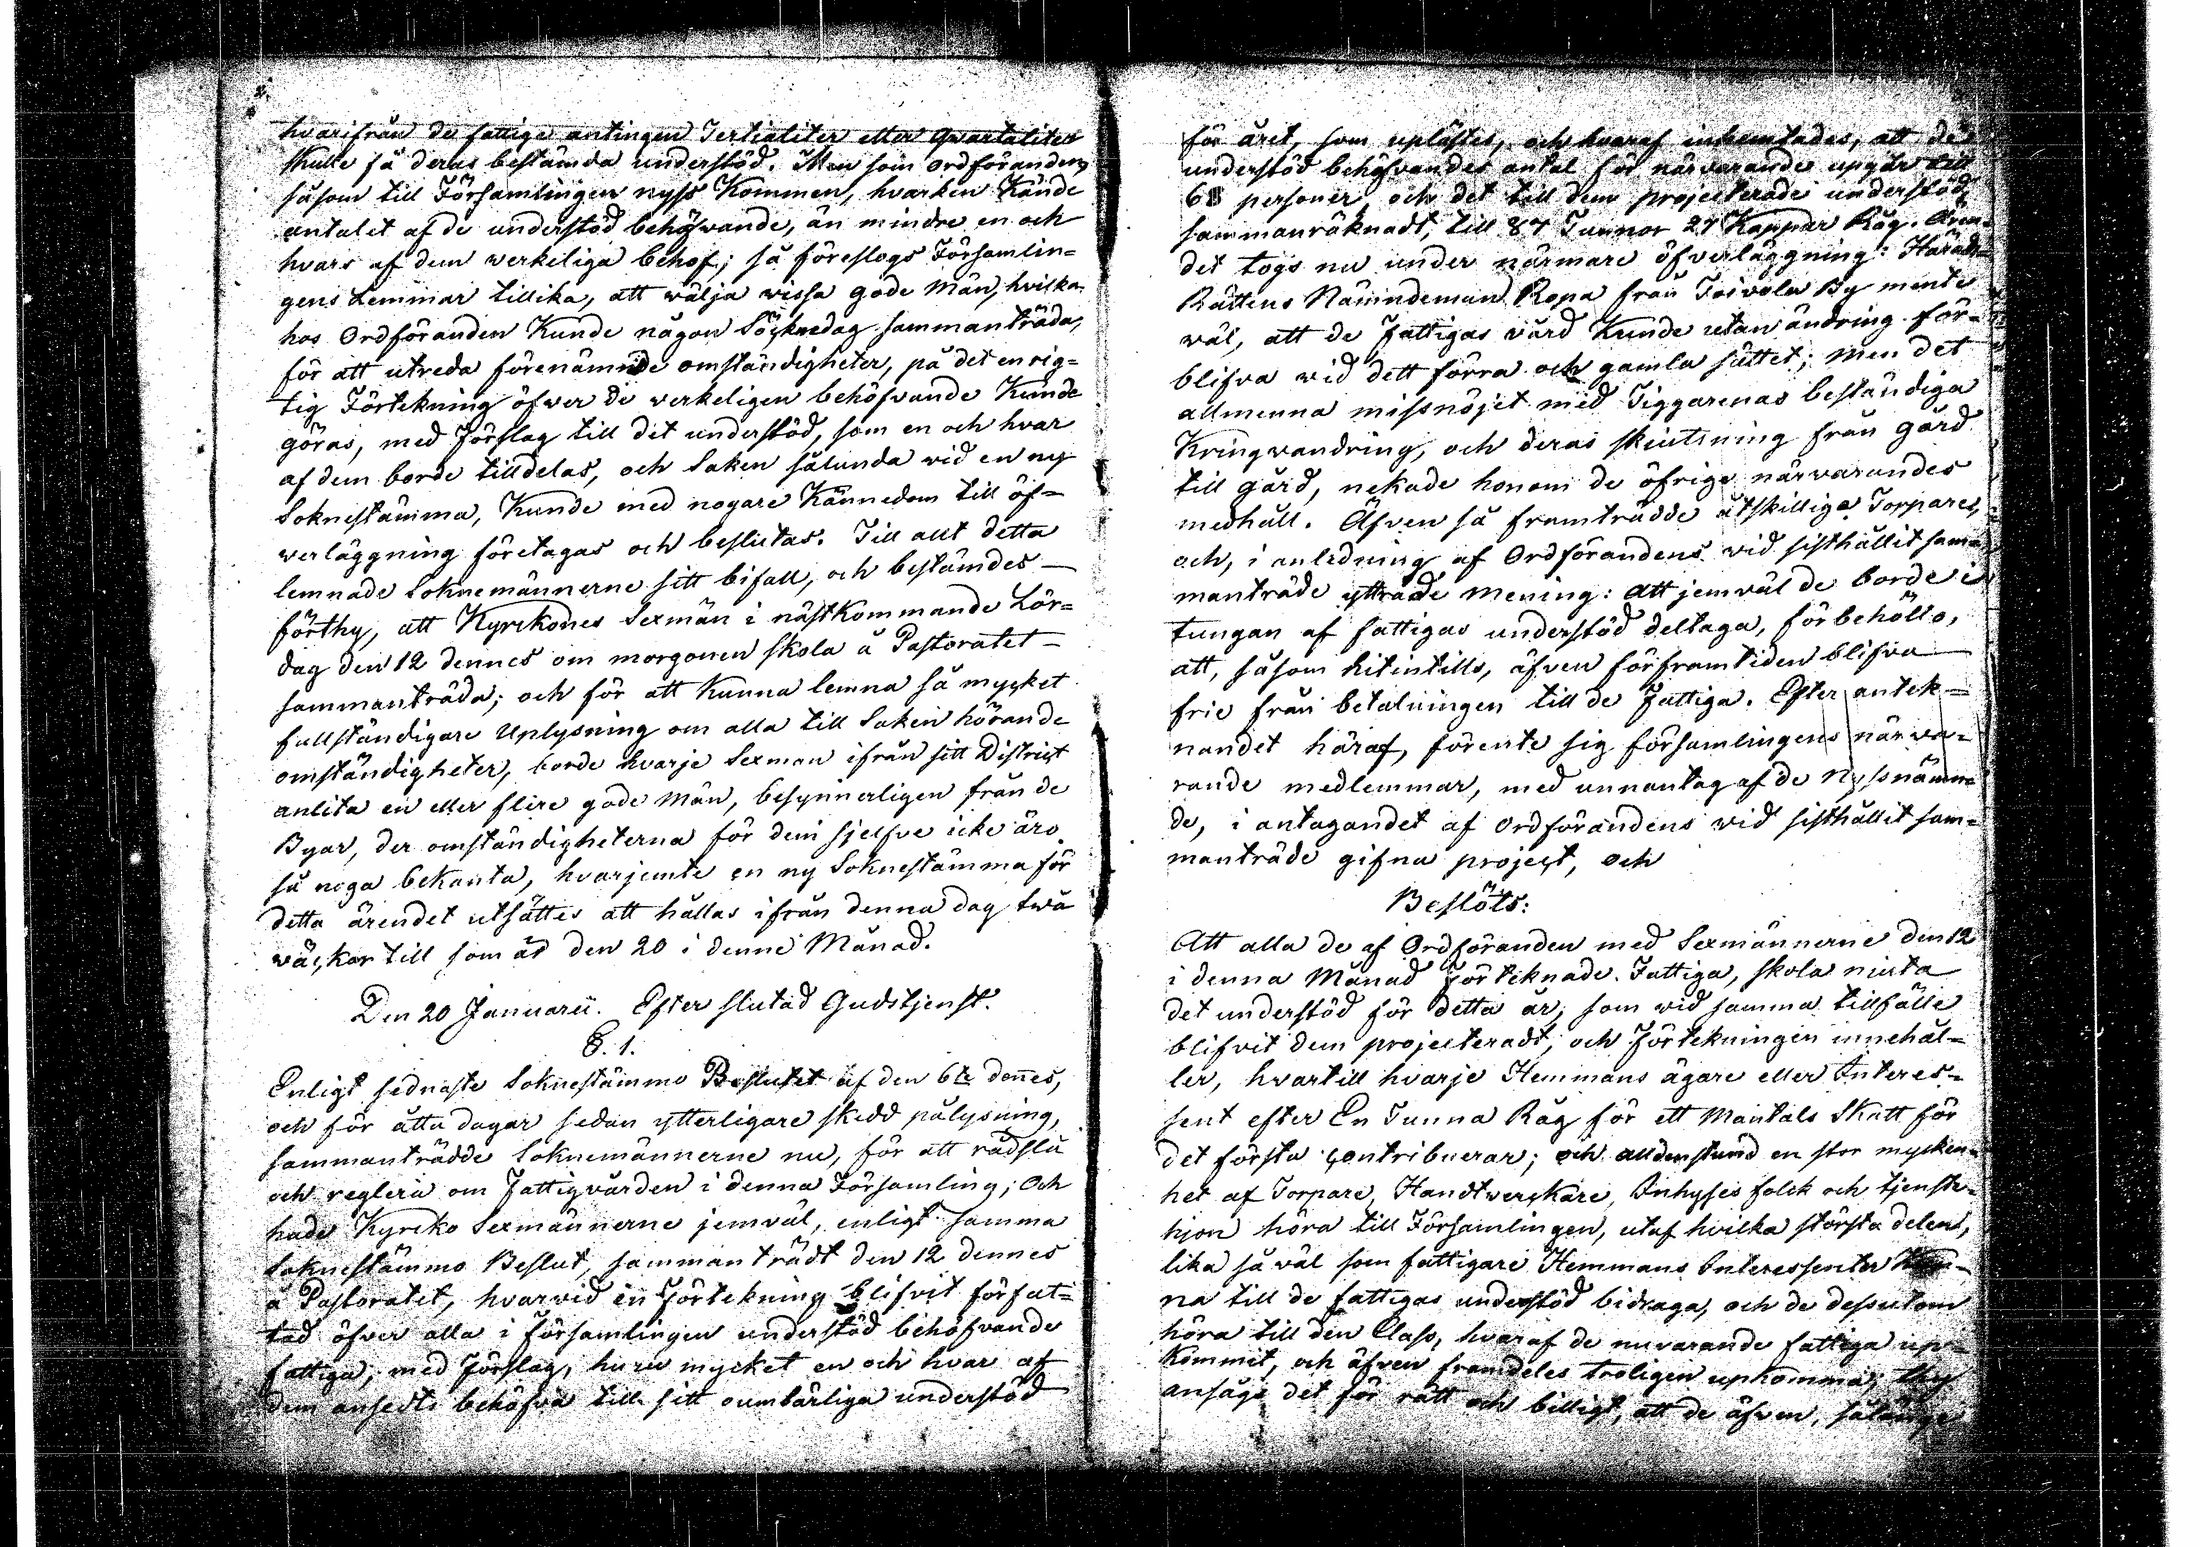 hvarifrån de fattige antingen Tertialiter eller Qvartaliter
skulle få deras bestämda understöd. Men som Ordföranden,
såsom till Församlingen nyss Kommen, hvarken Kände
antalet af de understöd behöfvande, än mindre en och
hvars af dem verkeliga behof; så föreslogs Församlin=
gens Lemmar tillika, att välja vissa gode Män, hvilka
hos Ordföranden Kunde någon Söcknedag sammanträda,
för att utreda förenämnde omständigheter, på det en rig=
tig Förtekning öfwer de verkeligen behöfvande Kunde
göras, med Förslag till det understöd, som en och hvar
af dem borde tilldelas, och Saken sålunda vid en ny
Soknestämma, Kunde med nogare Kännedom till öf=
verläggning företagas och beslutas. Till allt detta
lemnade Soknemännerne sitt bifall, och bestämdes —
förthy, att Kyrckones Sexmän i nästkommande Lör=
dag den 12 dennes om morgonen skola å Pastoratet —
sammanträda; och för att Kunna lemna så mycket
fullständigare Uplysning om alla till Saken hörande
omständigheter, borde hvarje Sexman ifrån sitt District
anlita en eller flere gode Män, besynnerligen från de
Byar, der omständigheterna för dem sjelfve icke äro
så noga bekanta, hvarjemte en ny Soknestämma för
detta ärendet utsättes att hållas ifrån denna dag två
väckor till som är den 20 i denne Månad.
Den 20 Januarii. Efter slutad Gudstjenst.
§. 1.
Enligt sednaste Soknestämmo Beslutet af den 6te dennes,
och för åtta dagar sedan ytterligare skedd pålysning,
sammanträdde Soknemännerne nu, för att rådslå
och reglera om Fattigvården i denna Församling; Och
hade Kyrcko Sexmännerne jemväl, enligt samma
Soknestämmo Beslut, sammanträdt den 12 dennes
å Pastoratet, hvarvid en Förtekning blifvit förfat=
tad öfver alla i församlingen understöd behöfvande
fattiga, med Förslag, huru mycket en och hvar af
dem ansedts behöfva till sitt oumbärliga understöd
för året, som uplästes, och hvaraf inhemtades, att de
understöd behöfvandes antal för närvarande upgår till
68 personer, och det till dem projecterade understöd,
sammanräknadt, till 87 Tunnor 27 Kappar Råg. Ären=
det togs nu under närmare öfverläggning: Härads=
Rättens Nämndeman Ropa från Toivola By mente
väl, att de Fattigas vård Kunde utan ändring för=
blifva vid dett förra och gamla sättet; men det
allmenna missnöjet med Tiggarenas beständiga
Kringvandring, och deras skjutsning från gård
till gård, nekade honom de öfrige närvarandes
medhåll. Äfven så framträdde åtskillige Torpare,
och, i anledning af Ordförandens vid sisthållit sam=
manträde yttrade Mening: att jemväl de borde i
tungan af fattigas understöd deltaga, förbehöllo,
att, såsom hitintills, äfven för framtiden blifva —
frie från betalningen till de Fattiga. Efter antek=
nandet häraf, förente sig församlingens närva=
rande medlemmar, med unnantag af de Nyssnämn=
de, i antagandet af Ordförandens vid sisthållit sam=
manträde gifna project, och
Beslöts:
Att alla de af Ordföranden med Sexmännerne den 12
i denna Månad förteknade Fattiga, skola niuta
det understöd för detta år, som vid samma tillfälle
blifvit dem projecteradt, och Förtekningen innehål=
ler, hvartill hvarje Hemmans ägare eller Interes=
sent efter En Tunna Råg för ett Mantals Skatt för
det första contribuerar; och alldenstund en stor mycken=
het af Torpare, Handtverckare, Inhyses folck och tjenste=
hjon höra till Församlingen, utaf hvilka största delen,
lika så väl som fattigare Hemmans Interessenter Kun=
na till de fattigas understöd bidraga, och de dessutom
höra till den Class, hvaraf de nuvarande fattiga up=
kommit, och äfven framdeles troligen upkomma; thy
ansågs det för rätt och billigt, att de äfven, sålänge